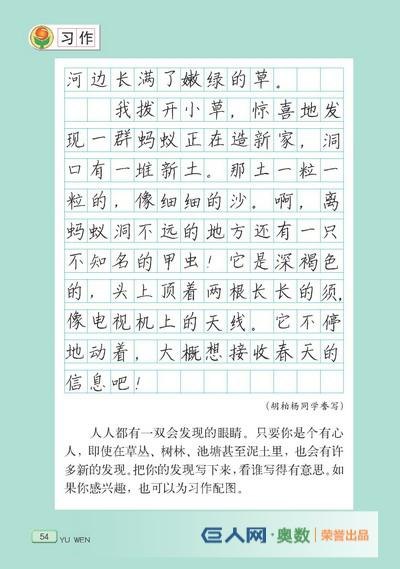 习作
河边长满了嫩绿的草。
我拨开小草，惊喜地发
现一群蚂蚁正在造新家，洞
口有一堆新土。那土一粒一
粒的，像细细的沙。啊，离
蚂蚁洞不远的地方还有一只
不知名的甲虫！它是深褐色
的，头上顶着两根长长的须，
像电视机上的天线。它不停
地动着，大概想接收春天的
信息吧！
（胡柏杨同学誊写）
人人都有一双会发现的眼睛。只要你是个有心
人，即使在草丛、树林、池塘甚至泥土里，也会有许
多新的发现。把你的发现写下来，看谁写得有意思。如
果你感兴趣，也可以为习作配图。
54 YU WEN
巨人网·奥数 荣誉出品